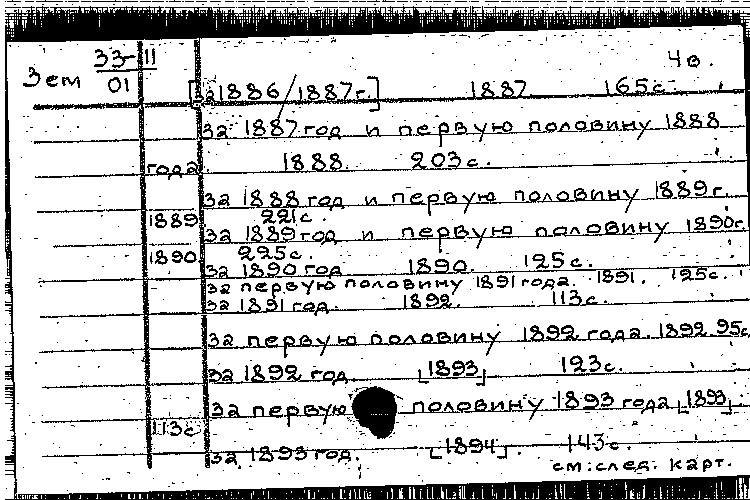 Зем 33-11 4в.
01
[за 1886/1887г.] 1887 165с.
за 1887 год и первую половину 1888
года 1888. 203с.
за 1888 год и первую половину 1889 г.
1889 221с.
за 1889 год и первую половину 1890г.
1890 225с.
за 1890 год 1890. 125с.
за первую половину 1891 года. 1891. 125с.
за 1891 год. 1892. 113с.
за первую половину 1892 года. 1892 95с
за 1892 год [1893] 123с.
за первую половину 1893 года [1893].
113с
за 1893 год. [1894]. 143с.
см.след. карт.